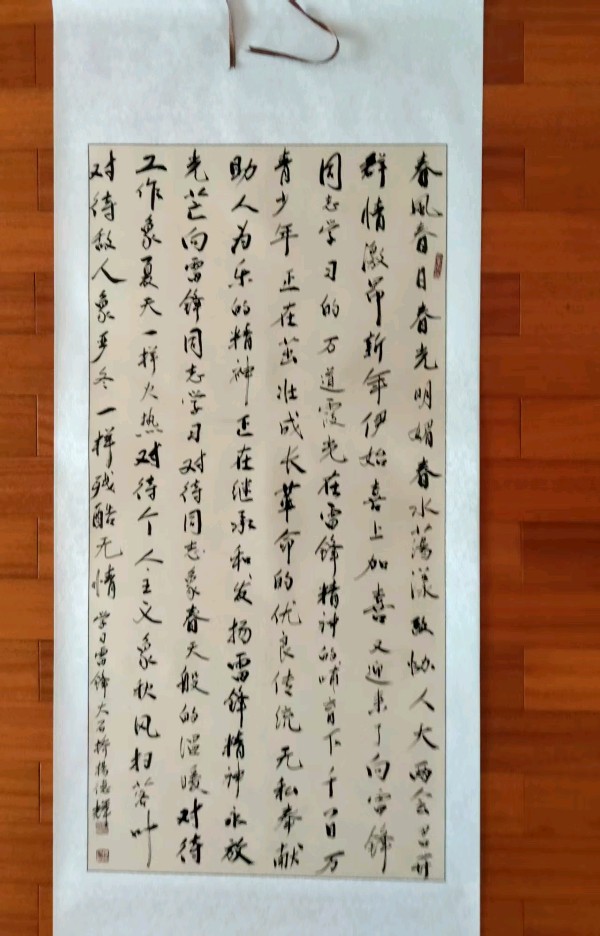 春风春日春光明媚春水荡漾政协人大两会召开
群情激昂新年伊始喜上加喜又迎来了向雷锋
同志学习的万道霞光在雷锋精神的哺育下千百万
青少年正在茁壮成长革命的优良传统无私奉献
助人为乐的精神正在继承和发扬雷锋精神永放
光芒向雷锋同志学习对待同志象春天般的温暖对待
工作象夏天一样火热对待个人主义象秋风扫落叶
对待敌人象严冬一样残酷无情
学习雷锋大石桥杨德辉